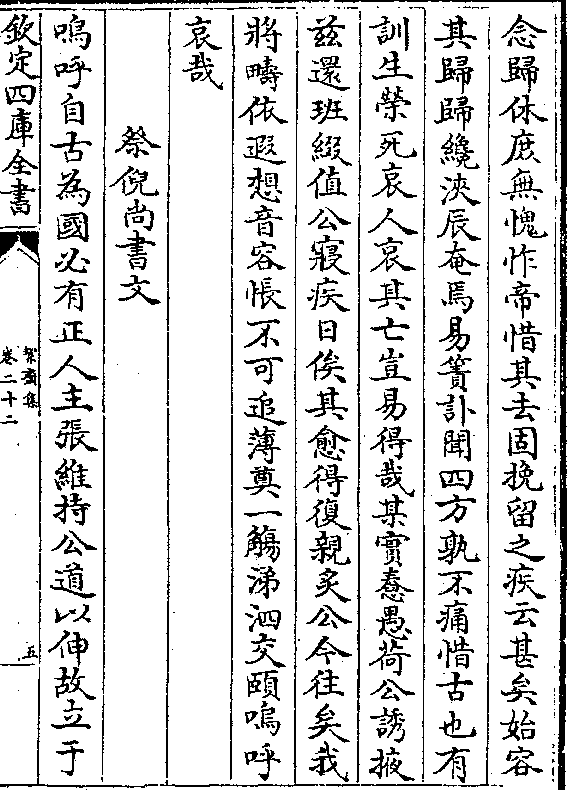 念歸休庶無愧怍帝惜其去固挽留之疾云甚矣始容
其歸歸纔浹辰奄焉易簀訃聞四方孰不痛惜古也有
訓生榮死哀人哀其亡豈易得哉某實惷愚荷公誘掖
兹還班綴值公寢疾日俟其愈得復親炙公今往矣我
將疇依遐想音容悵不可追薄奠一觴涕泗交頤嗚呼
哀哉
祭倪尚書文
嗚呼自古為國必有正人主張維持公道以伸故立于
欽定四庫全書
絜齋集
卷二十二
五